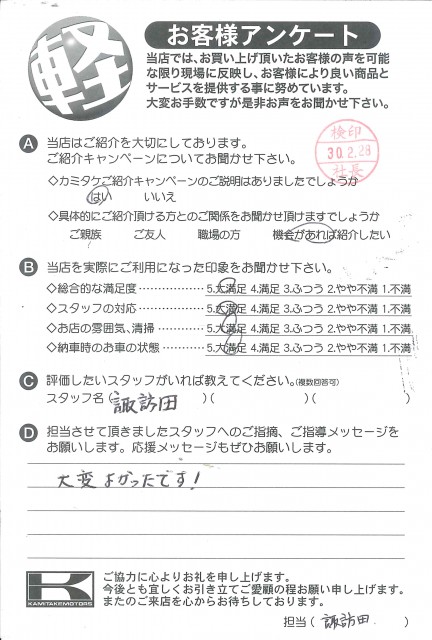 軽
お客様アンケート
当店では、お買い上げ頂いたお客様の声を可能
な限り現場に反映し、お客様により良い商品と
サービスを提供する事に努めています。
大変お手数ですが是非お声をお聞かせ下さい。
検印
30.2.28
社長
A 当店はご紹介を大切にしております。
ご紹介キャンペーンについてお聞かせ下さい。
◇カミタケご紹介キャンペーンのご説明はありましたでしょうか
はい いいえ
◇具体的にご紹介頂ける方とのご関係をお聞かせ頂けますでしょうか
ご親族 ご友人 職場の方 機会があれば紹介したい
B 当店を実際にご利用になった印象をお聞かせ下さい。
◇総合的な満足度 ……………… 5.大満足 4.満足 3.ふつう 2.やや不満 1.不満
◇スタッフの対応 ……………… 5.大満足 4.満足 3.ふつう 2.やや不満 1.不満
◇お店の雰囲気、清掃 ………… 5.大満足 4.満足 3.ふつう 2.やや不満 1.不満
◇納車時のお車の状態 ………… 5.大満足 4.満足 3.ふつう 2.やや不満 1.不満
C 評価したいスタッフがいれば教えてください。(複数回答可)
スタッフ名( 諏訪田 )( )( )
D 担当させて頂きましたスタッフへのご指摘、ご指導メッセージを
お願いします。応援メッセージもぜひお願いします。
大変よかったです!
K
KAMITAKEMOTORS
ご協力に心よりお礼を申し上げます。
今後とも宜しくお引き立てご愛顧の程お願い申し上げます。
またのご来店を心からお待ちしております。
担当( 諏訪田 )